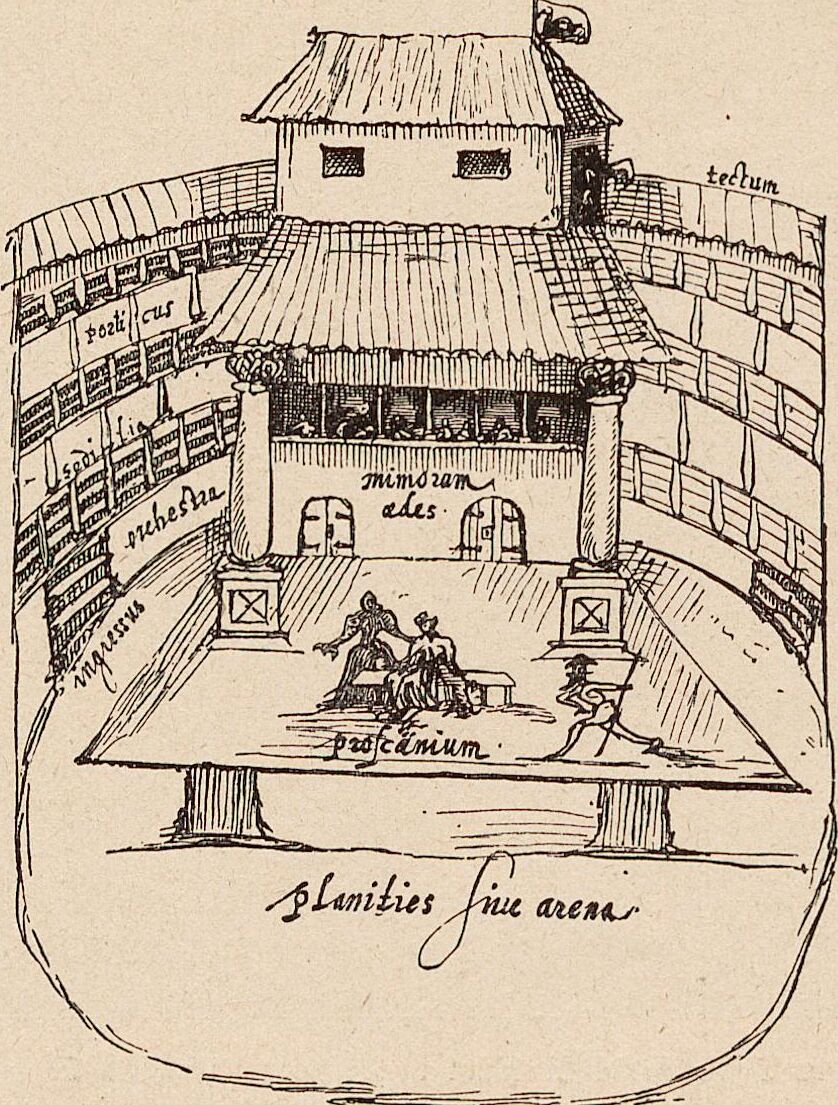 tectum
porticus
sedilia
orchestra
mimorum
ædes
ingressus
proscænium
planities sive arena